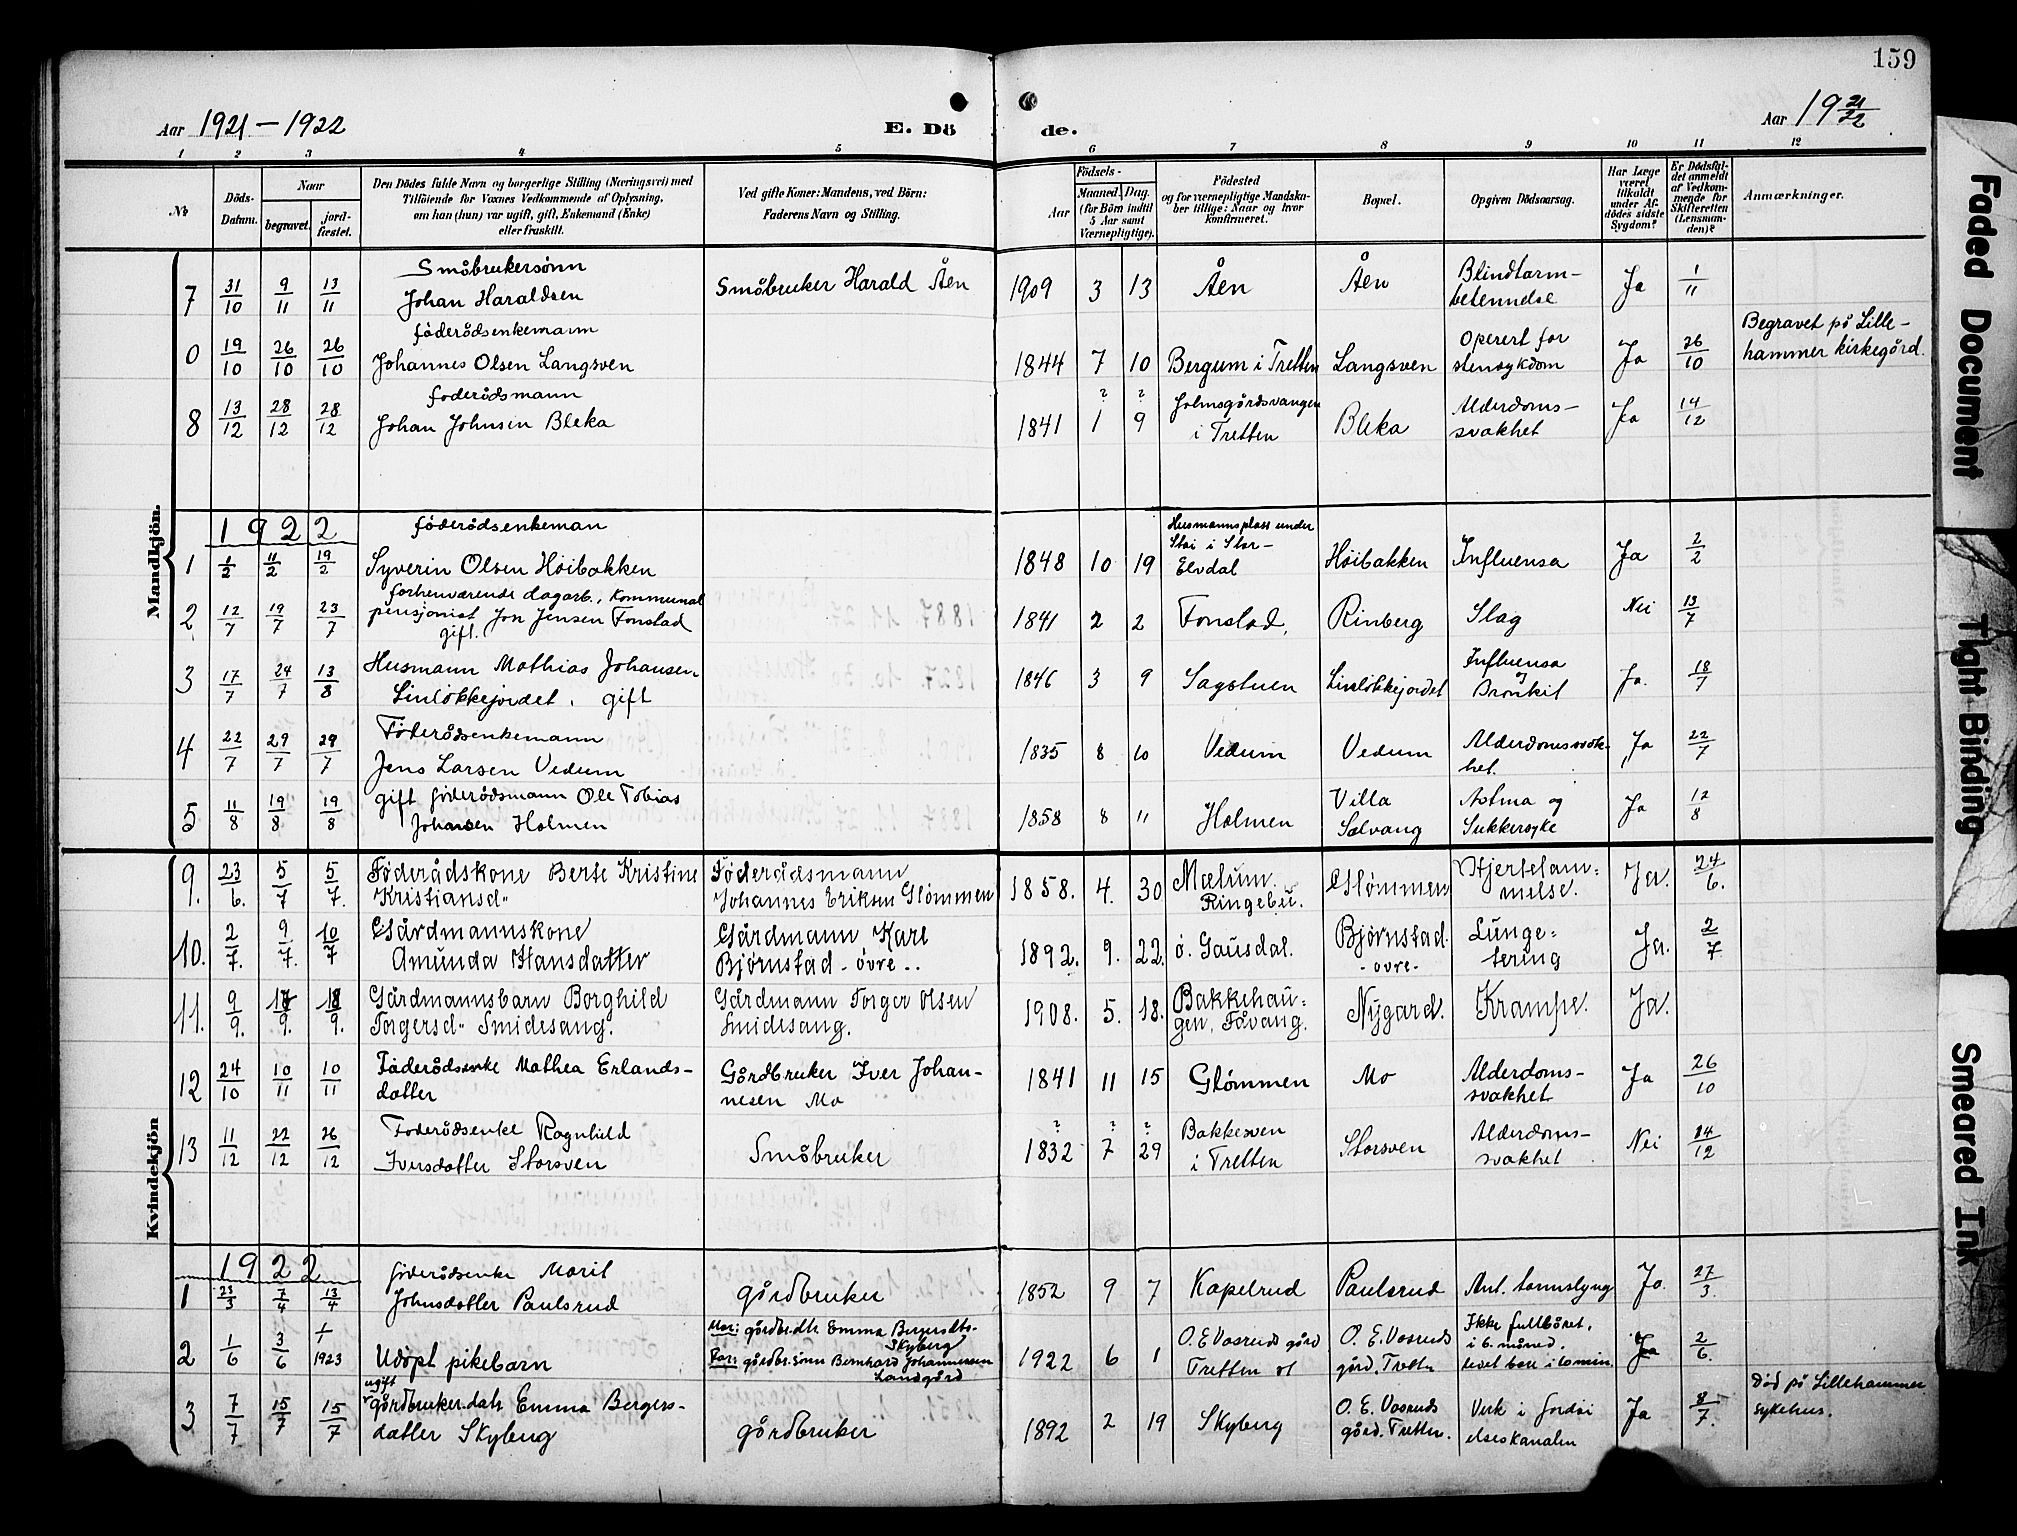 159
Aar 1921 - 1922
E. Döde.
Aar 19 21/22
1 2 3 4 5 6 7 8 9 10 11 12
№
Döds-Datum.
Naar
begravet.
jord-fæstet.
Den Dödes fulde Navn og borgerlige Stilling (Næringsvei) med
Tilföiende for Voxnes Vedkommende af Oplysning,
om han (hun) var ugift, gift, Enkemand (Enke)
eller fraskilt.
Ved gifte Koner: Mandens, ved Börn:
Faderens Navn og Stilling.
Födsels-
Aar
Maaned. Dag.
(for Börn indtil
5 Aar samt
Værnepligtige).
Födested
og for værnepligtige Mandska-
ber tillige: Naar og hvor
konfirmeret.
Bopæl.
Opgiven Dödsaarsag.
Har Læge
været
tilkaldt
under Af-
dödes sidste
Sygdom?
Er Dödsfal-
det anmeldt
af Vedkom-
mende for
Skifteretten
(Lensman-
den)?
Anmærkninger.
Mandkjön.
7 31/10 9/11 13/11 Småbrukersönn
Johan Haraldsen
Småbruker Harald Åen 1909 3 13 Åen Åen Blindtarm-
betennelse Ja 1/11
0 19/10 26/10 26/10 föderådsenkemann
Johannes Olsen Langsven
1844 7 10 Bergum i Tretten Langsven Operert for
stensykdom Ja 26/10 Begravet på Lille-
hammer kirkegård.
8 13/12 28/12 28/12 foderådsmann
Johan Johnsen Bleka
1841 ? 1 ? 9 Holmsgårdsvangen
i Tretten Bleka Alderdoms-
svakhet Ja 14/12
1922
1 1/2 11/2 19/2 föderådsenkeman
Syverin Olsen Höibakken
1848 10 19 Husmannsplass under
Stai i Stor-
Elvdal Höibakken Influensa Ja 2/2
2 12/7 19/7 23/7 forhenværende dagarb., kommunal
pensjonist Jon Jensen Fonstad
gift.
1841 2 2 Fonstad, Rinberg Slag Nei 13/7
3 17/7 24/7 13/8 Husmann Mathias Johansen
Linlökkejordet, gift
1846 3 9 Sagstuen Linlökkejordet Influensa
og
Bronkit Ja. 18/7
4 22/7 29/7 29/7 Föderådsenkemann
Jens Larsen Vedum
1835 8 10 Vedum Vedum Alderdomssvak-
het. Ja 22/7
5 11/8 19/8 19/8 gift föderådsmann Ole Tobias
Johansen Holmen
1858 8 11 Holmen Villa
Solvang Astma og
Sukkersyke Ja 12/8
Kvindekjön
9. 23/6. 5/7 5/7. Föderådskone Berte Kristine
Kristiansd"
Föderådsmann
Johannes Eriksen Glömmen 1858. 4. 30 Mælum.
Ringebu. Glömmen Hjertelam-
melse. Ja. 24/6.
10. 2/7. 9/7. 10/7 Gårdmannskone
Amunda Hansdatter
Gårdmann Karl
Björnstad - övre - . 1892. 9. 22. ö. Gausdal. Björnstad.
- övre - Lunge=
tering Ja. 2/7.
11. 9/9. 17/9. 18/9. Gårdmannsbarn Borghild
Torgersd" Smidesang.
Gårdmann Torger Olsen
Smidesang. 1908. 5. 18. Bakkehau=
gen, Fåvang. Nygard. Krampe. Ja.
12 24/10 10/11 10/11 Föderådsenke Mathea Erlands-
datter
Gårdbruker Iver Johan-
nesen Mo 1841 11 15 Glömmen Mo Alderdoms-
svakhet Ja 26/10
13 11/12 22/12 26/12 Foderådsenke Ragnhild
Iversdatter Storsven
Småbruker ? 1832 ? 7 ? 29 Bakkesven
i Tretten Storsven Alderdoms-
svakhet Nei 14/12
1922
1 23/3 7/4 13/4 föderådsenke Marit
Johnsdatter Paulsrud
gårdbruker 1852 9 7 Kapelrud Paulsrud Ant. tarmslyng Ja. 27/3.
2 1/6 3/6 1/1 1923 Udöpt pikebarn
Mor: gårdbr.dtr. Emma Bergersdtr.
Skyberg
Far: gårdbr.sönn Bernhard Johannessen
Landgård 1922 6 1 O. E. Vasruds gård
Tretten st O. E. Vasruds
gård. Tretten Ikke fullbåret,
i 6. måned,
levet bare i 10 min. Ja 2/6.
3 7/7 15/7 15/7 ugift
gårdbruker.datr Emma Bergers-
datter Skyberg
gårdbruker 1892 2 19 Skyberg O. E. Vasruds
gård. Tretten. Verk i fordöi
elseskanalen Ja 8/7. Död på Lillehammer
sykehus.
Faded Document
Tight Binding
Smeared Ink